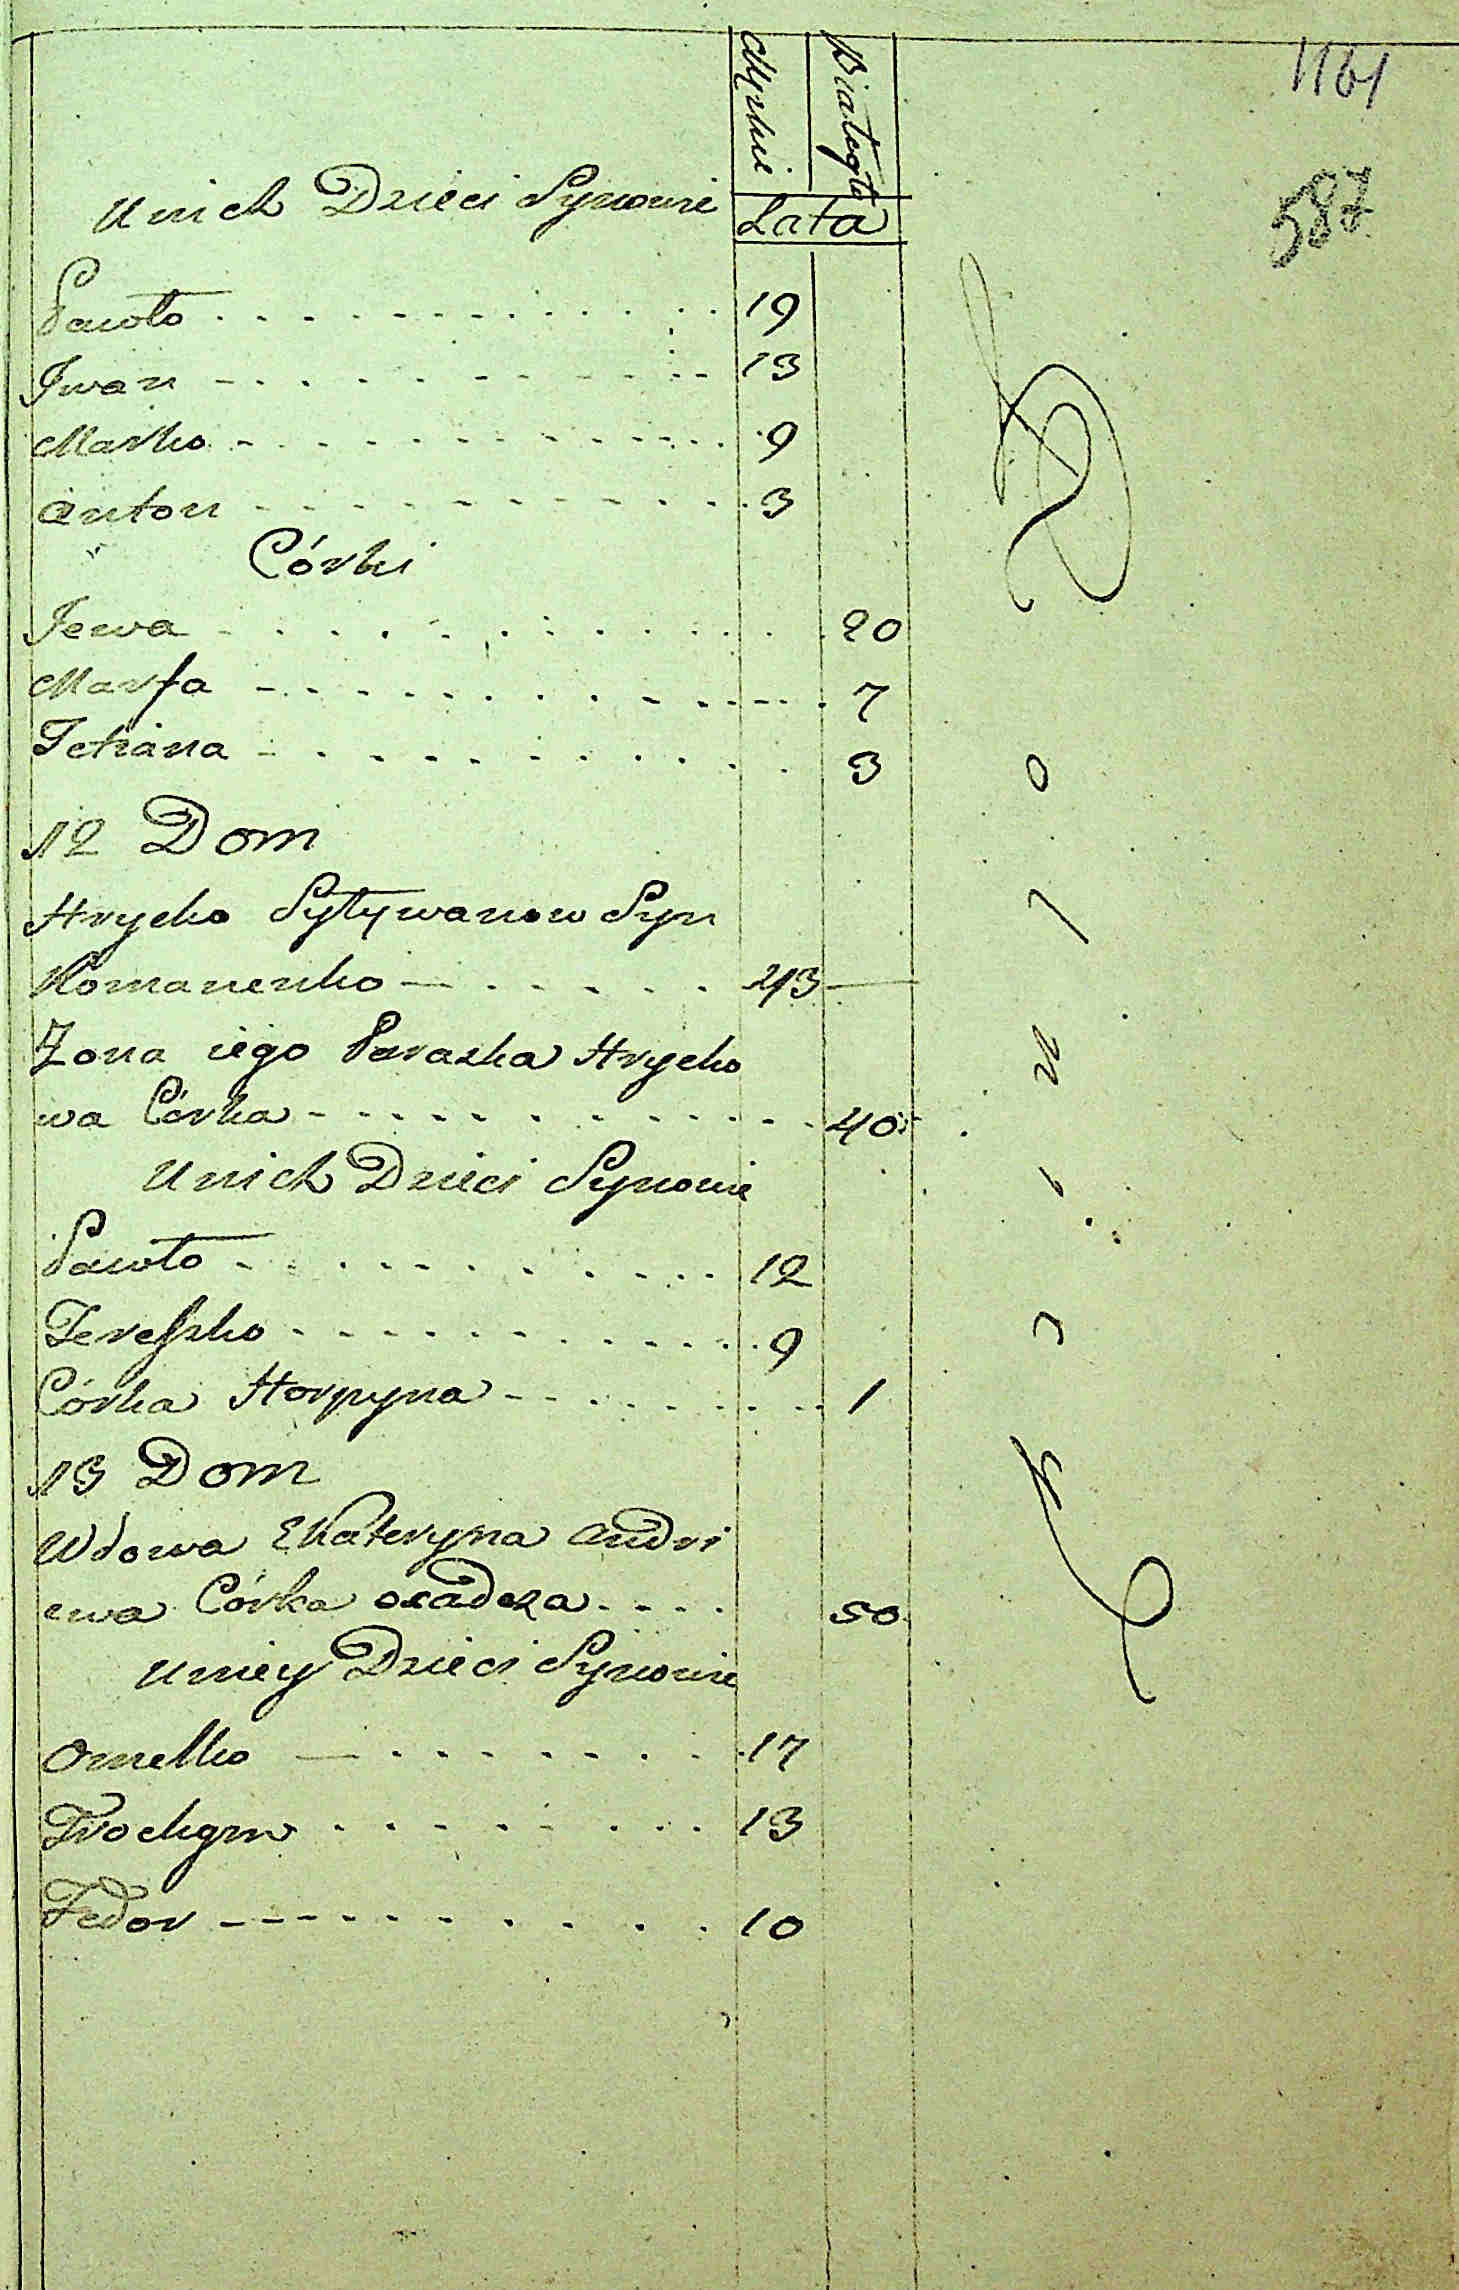 1161
587
Męskie Białogło
Lata
Unich Dzieci Synowie
Pawło 19
Iwan 13
Marko 9
Anton 3
Córki
Jewa 20
Marfa 7
Tetiana 3
12 Dom
Hryćko Sytywanow Syn
Romanenko 43
Zona iego Paraska Hryćko
wa Córka 40
Unich Dzieci Synowie
Pawło 12
Tereszko 9
Córka Horpyna 1
13 Dom
Wdowa Ekateryna Andri
ewa Córka osadcza 50
Uniey Dzieci Synowie
Omelko 17
Trochym 13
Fedor 10